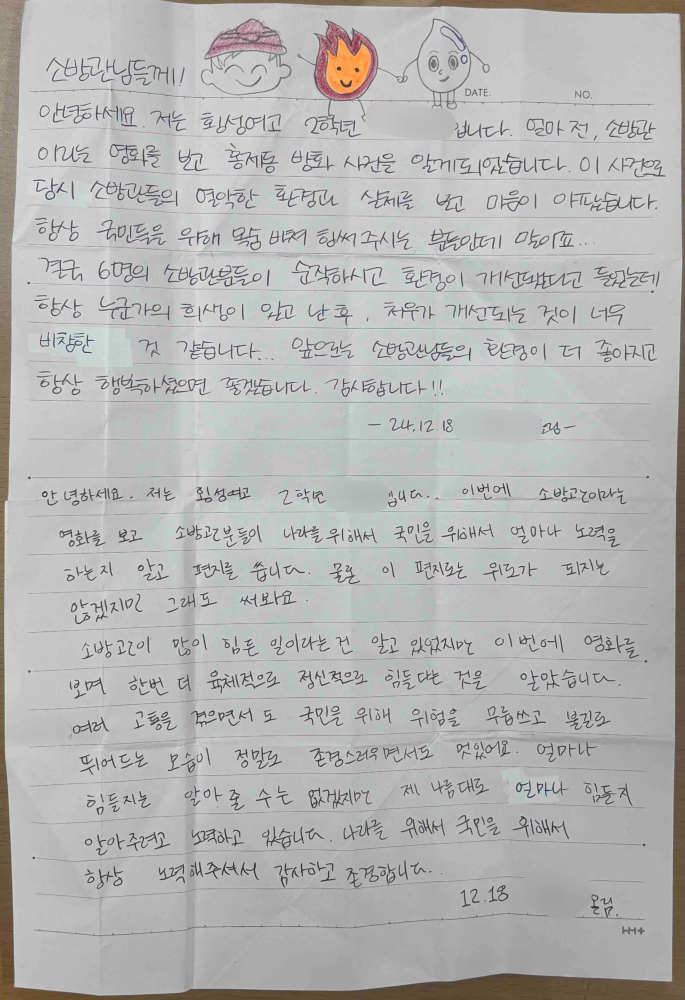 소방관님들께!
DATE. NO.
안녕하세요. 저는 횡성여고 2학년 입니다. 얼마 전, 소방관
이라는 영화를 보고 홍제동 방화 사건을 알게되었습니다. 이 사건으로
당시 소방관들의 열악한 환경과 실제를 보고 마음이 아팠습니다.
항상 국민들을 위해 목숨 바쳐 힘써주시는 분들인데 말이죠...
결국 6명의 소방관분들이 순직하시고 환경이 개선됐다고 들었는데
항상 누군가의 희생이 있고 난 후, 처우가 개선되는 것이 너무
비참한 것 같습니다... 앞으로는 소방관님들의 환경이 더 좋아지고
항상 행복하셨으면 좋겠습니다. 감사합니다!!
- 24.12.18 -
안녕하세요. 저는 횡성여고 2학년 입니다.. 이번에 소방관이라는
영화를 보고 소방관분들이 나라를 위해서 국민을 위해서 얼마나 노력을
하는지 알고 편지를 씁니다. 물론 이 편지로는 위로가 되지는
않겠지만 그래도 써봐요.
소방관이 많이 힘든 일이라는 건 알고 있었지만 이번에 영화를
보며 한번 더 육체적으로 정신적으로 힘들다는 것을 알았습니다.
여러 고통을 겪으면서도 국민을 위해 위험을 무릅쓰고 불길로
뛰어드는 모습이 정말로 존경스러우면서도 멋있어요. 얼마나
힘들지는 알아 줄 수는 없겠지만 제 나름대로 얼마나 힘들지
알아주려고 노력하고 있습니다. 나라를 위해서 국민을 위해서
항상 노력해주셔서 감사하고 존경합니다..
12.18 올림.